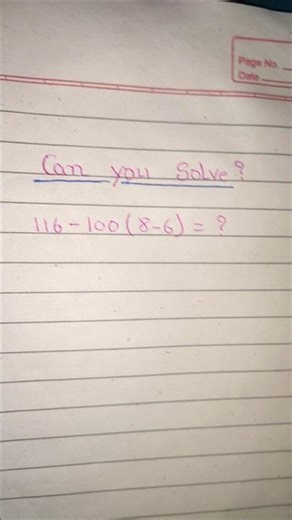 Page No.
Date
Can you Solve?
116-100(8-6)=?